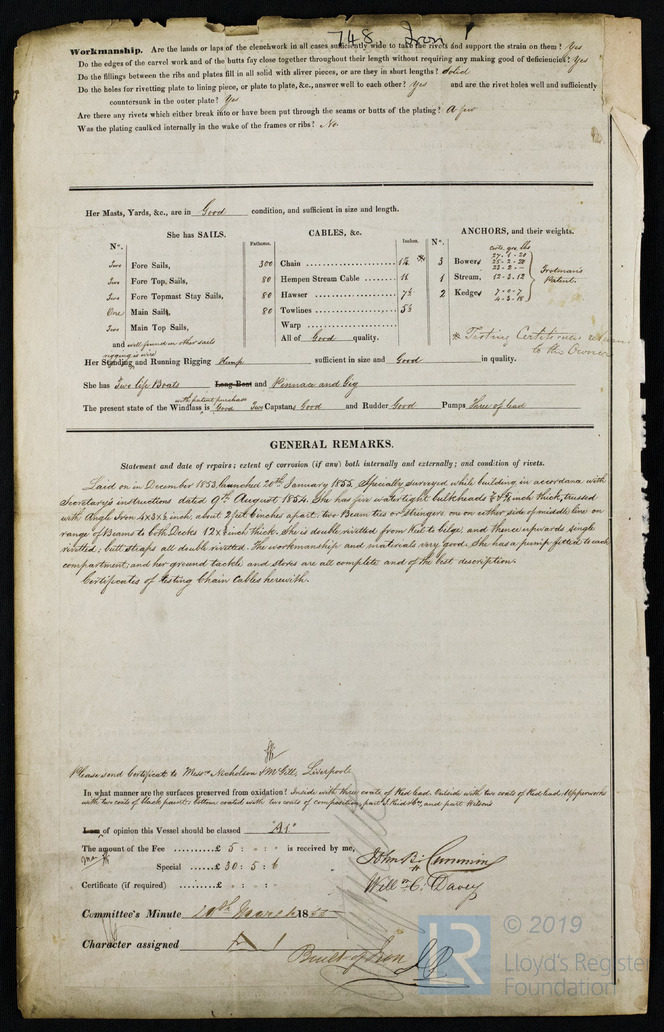 748 Iron
Workmanship. Are the lands or laps of the clenchwork in all cases sufficiently wide to take the rivets and support the strain on them? Yes
Do the edges of the carvel work and of the butts fay close together throughout their length without requiring any making good of deficiencies? Yes
Do the fillings between the ribs and plates fill in all solid with sliver pieces, or are they in short lengths? Solid
Do the holes for rivetting plate to lining piece, or plate to plate, &c., answer well to each other? Yes and are the rivet holes well and sufficiently
countersunk in the outer plate? Yes
Are there any rivets which either break into or have been put through the seams or butts of the plating? A few
Was the plating caulked internally in the wake of the frames or ribs? No.
Her Masts, Yards, &c., are in Good condition, and sufficient in size and length.
She has SAILS. CABLES, &c. ANCHORS, and their weights.
N°. Fathoms. Inches. N°. Cwts. qrs. lbs
Two Fore Sails, 300 Chain 3 Bowers 27.1.20
25.2.22
22.2.–
Two Fore Top Sails, 80 Hempen Stream Cable 11 1 Stream, 12.3.12 Trotman's Patent.
Two Fore Topmast Stay Sails, 80 Hawser 7½ 2 Kedges 7.0.7
4.3.18
One Main Sails, 80 Towlines 5½
Two Main Top Sails, Warp
and well found in other sails All of Good quality.
Testing Certificates
to the Owners
rigging is wire
Her Standing and Running Rigging Hemp sufficient in size and Good in quality.
She has Two life Boats Long Boat and Pinnace and Gig
with patent purchase
The present state of the Windlass is Good Two Capstans Good and Rudder Good Pumps Three of lead
GENERAL REMARKS.
Statement and date of repairs; extent of corrosion (if any) both internally and externally; and condition of rivets.
Laid on in December 1853, launched 20th January 1855. Specially surveyed while building in accordance with
Secretary's instructions dated 9th August 1854. She has five watertight bulkheads thick, trussed
with Angle Iron 4x3x½ inch, about 2 feet 6 inches apart: two Beam ties or Stringers one on either side of middle line on
range of Beams to both Decks 12x½ inch thick. She is double rivetted from Keel to bilge and thence upwards single
rivetted; butt straps all double rivetted. The workmanship and materials very good. She has a pump fitted to each
compartment, and her ground tackle and stores are all complete and of the best description.
Certificates of testing Chain Cables herewith.
Please send Certificate to Messrs Nicholson & McGill, Liverpool
In what manner are the surfaces preserved from oxidation? Inside with three coats of Red lead. Outside with two coats of Red lead. Upperworks
with two coats of black paint: bottom coated with two coats of composition, part and part Wilson's
I am of opinion this Vessel should be classed "A1"
The amount of the Fee £ 5 : - : - is received by me,
Special £ 30 : 5 : 6
John B. Cumming
Certificate (if required) £ : :
Willm C. Davey
Committee's Minute 20th March 1855
Character assigned A 1
Built of Iron
LR © 2019
Lloyd's Register
Foundation